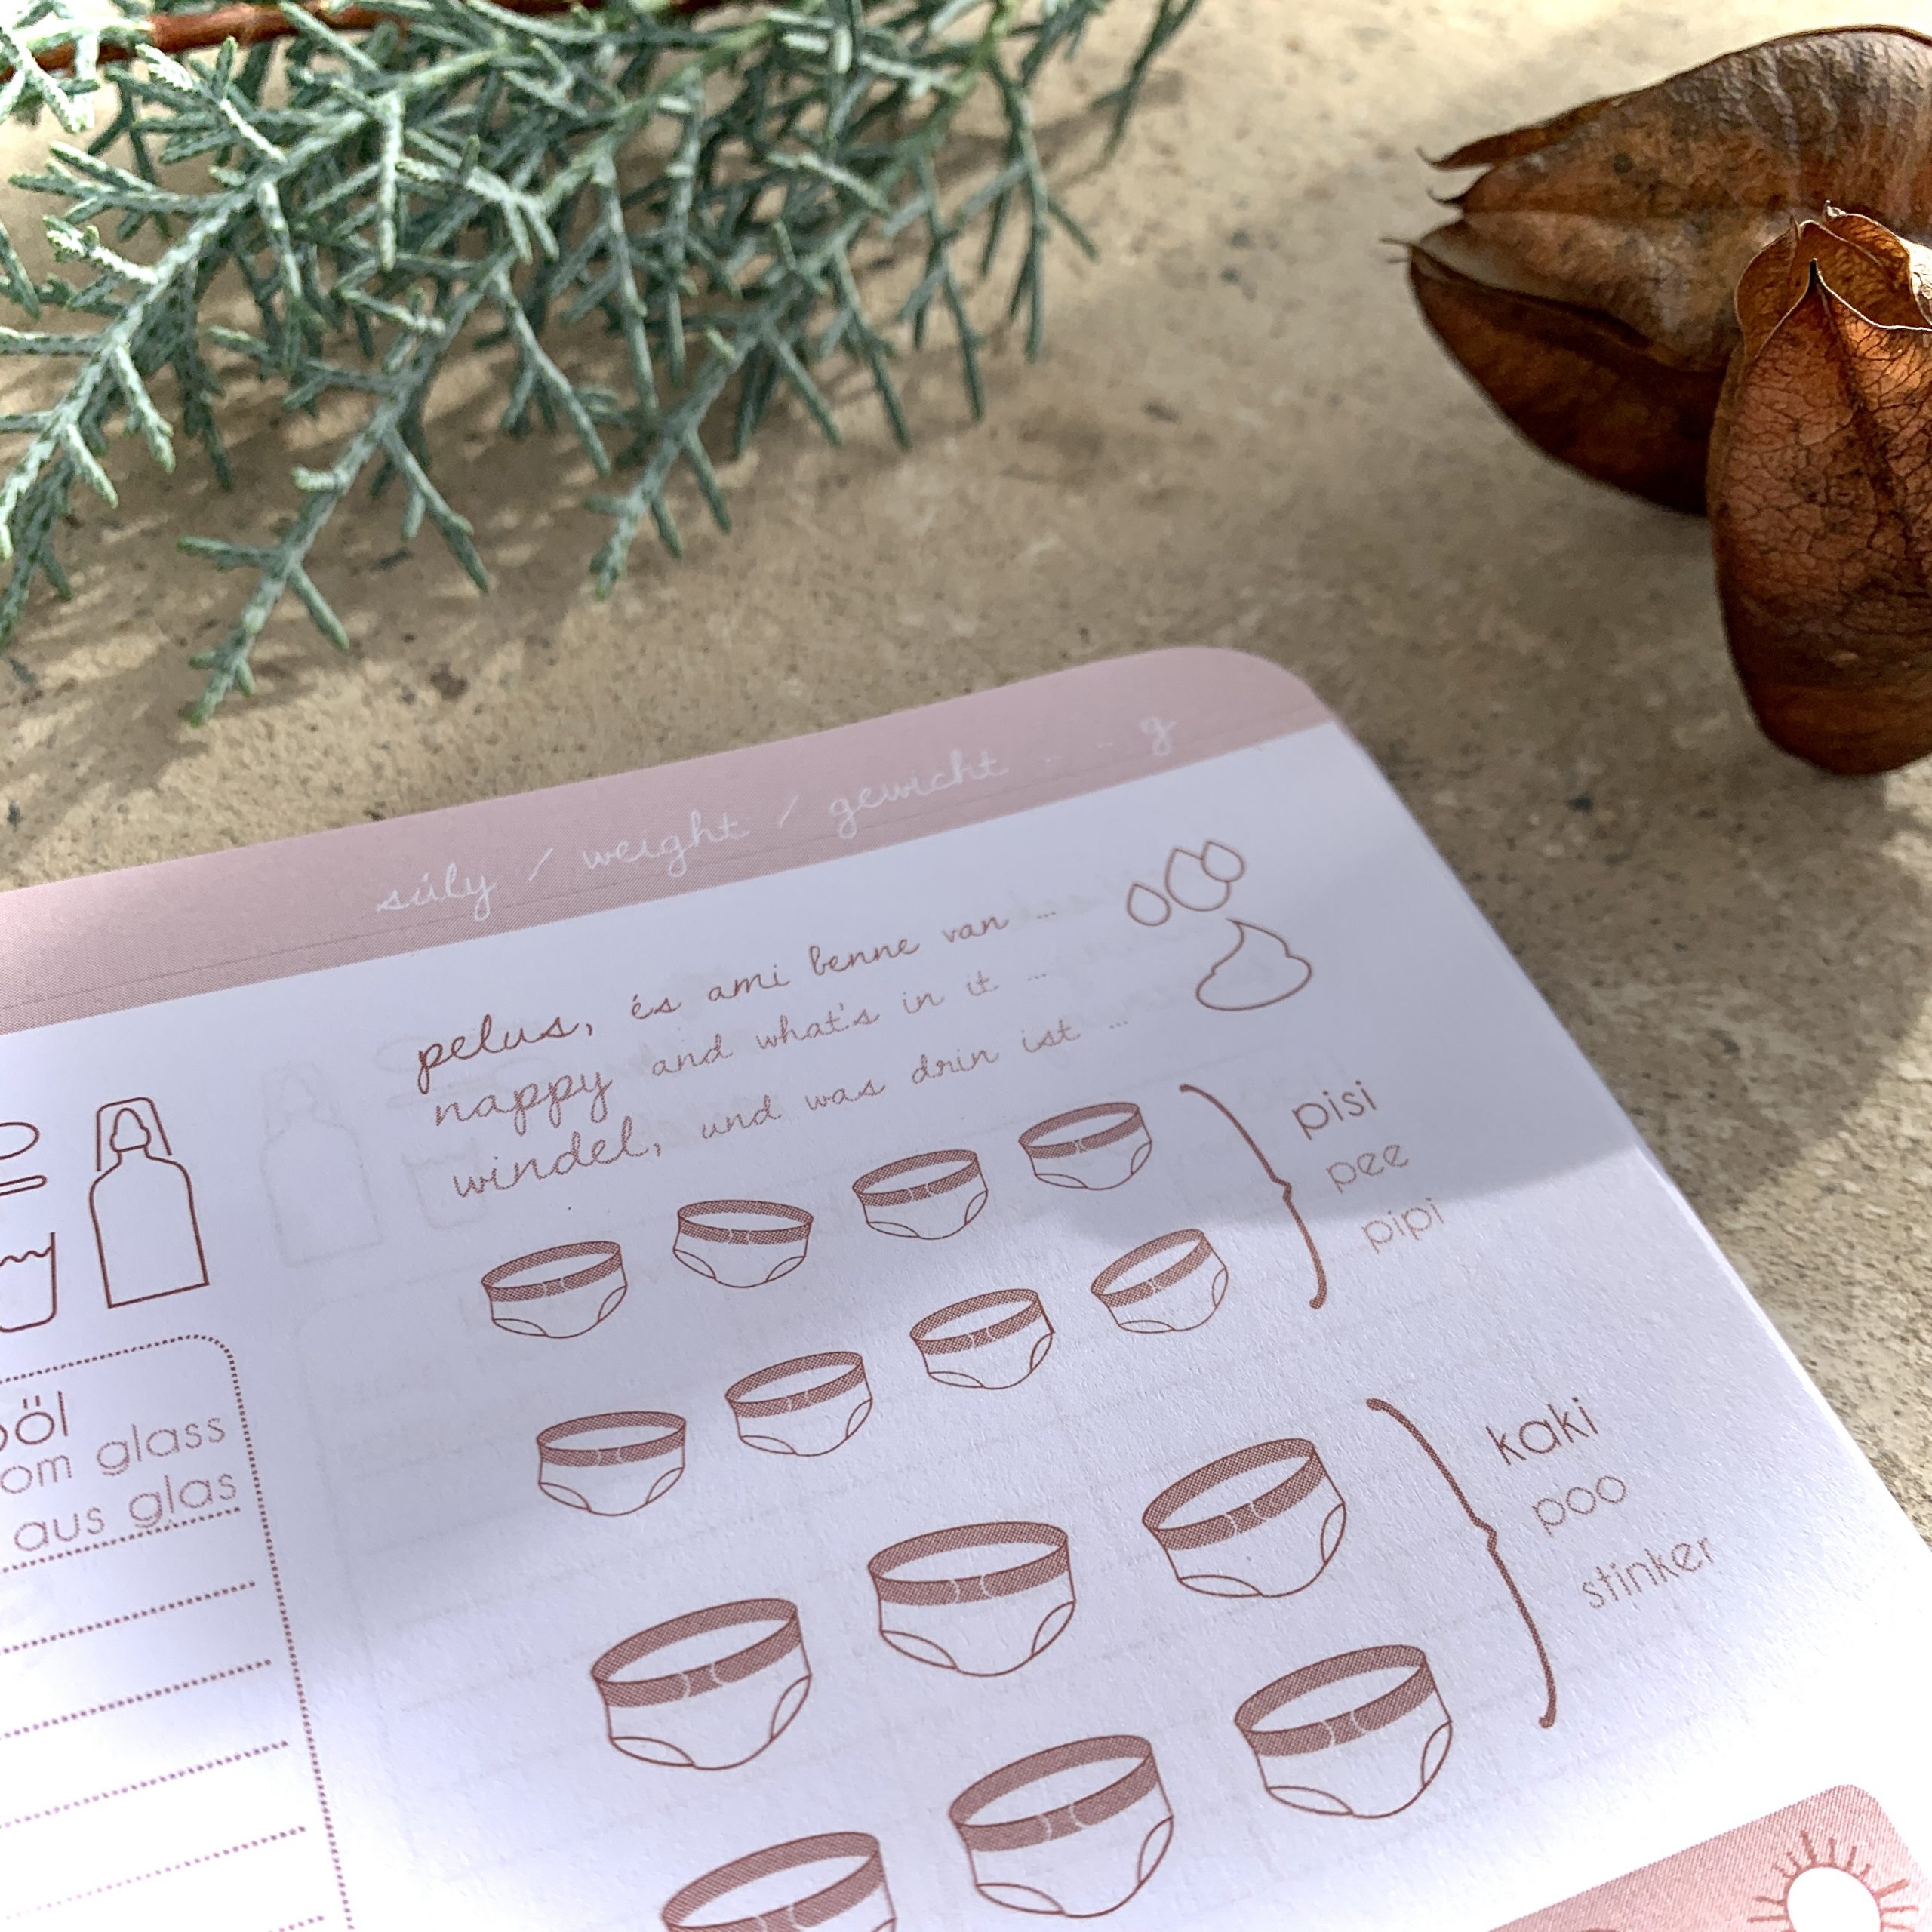 súly / weight / gewicht ... g
pelus, és ami benne van ...
nappy and what's in it ...
windel, und was drin ist ...
pisi
pee
pipi
kaki
poo
stinker
glass
aus glas